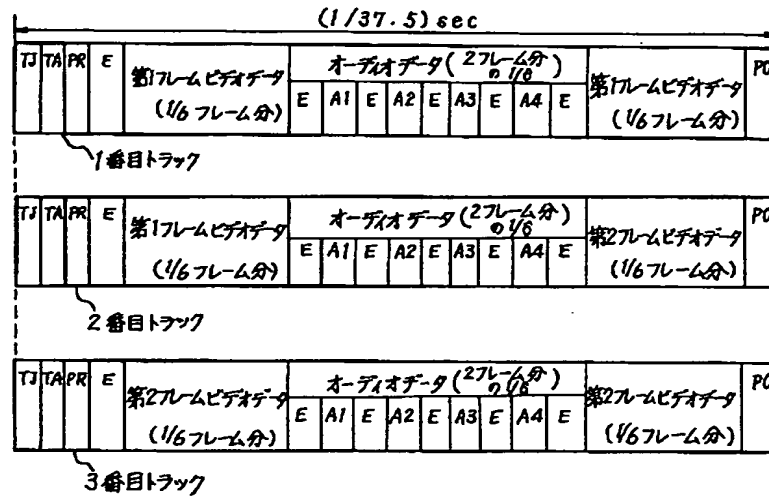 (1/37.5) sec
TJ TA PR E 第1フレームビデオデータ (1/6フレーム分) オーディオデータ(2フレーム分の1/6) E A1 E A2 E A3 E A4 E 第1フレームビデオデータ (1/6フレーム分) PO
1番目トラック
TJ TA PR E 第1フレームビデオデータ (1/6フレーム分) オーディオデータ(2フレーム分の1/6) E A1 E A2 E A3 E A4 E 第2フレームビデオデータ (1/6フレーム分) PO
2番目トラック
TJ TA PR E 第2フレームビデオデータ (1/6フレーム分) オーディオデータ(2フレーム分の1/6) E A1 E A2 E A3 E A4 E 第2フレームビデオデータ (1/6フレーム分) PO
3番目トラック